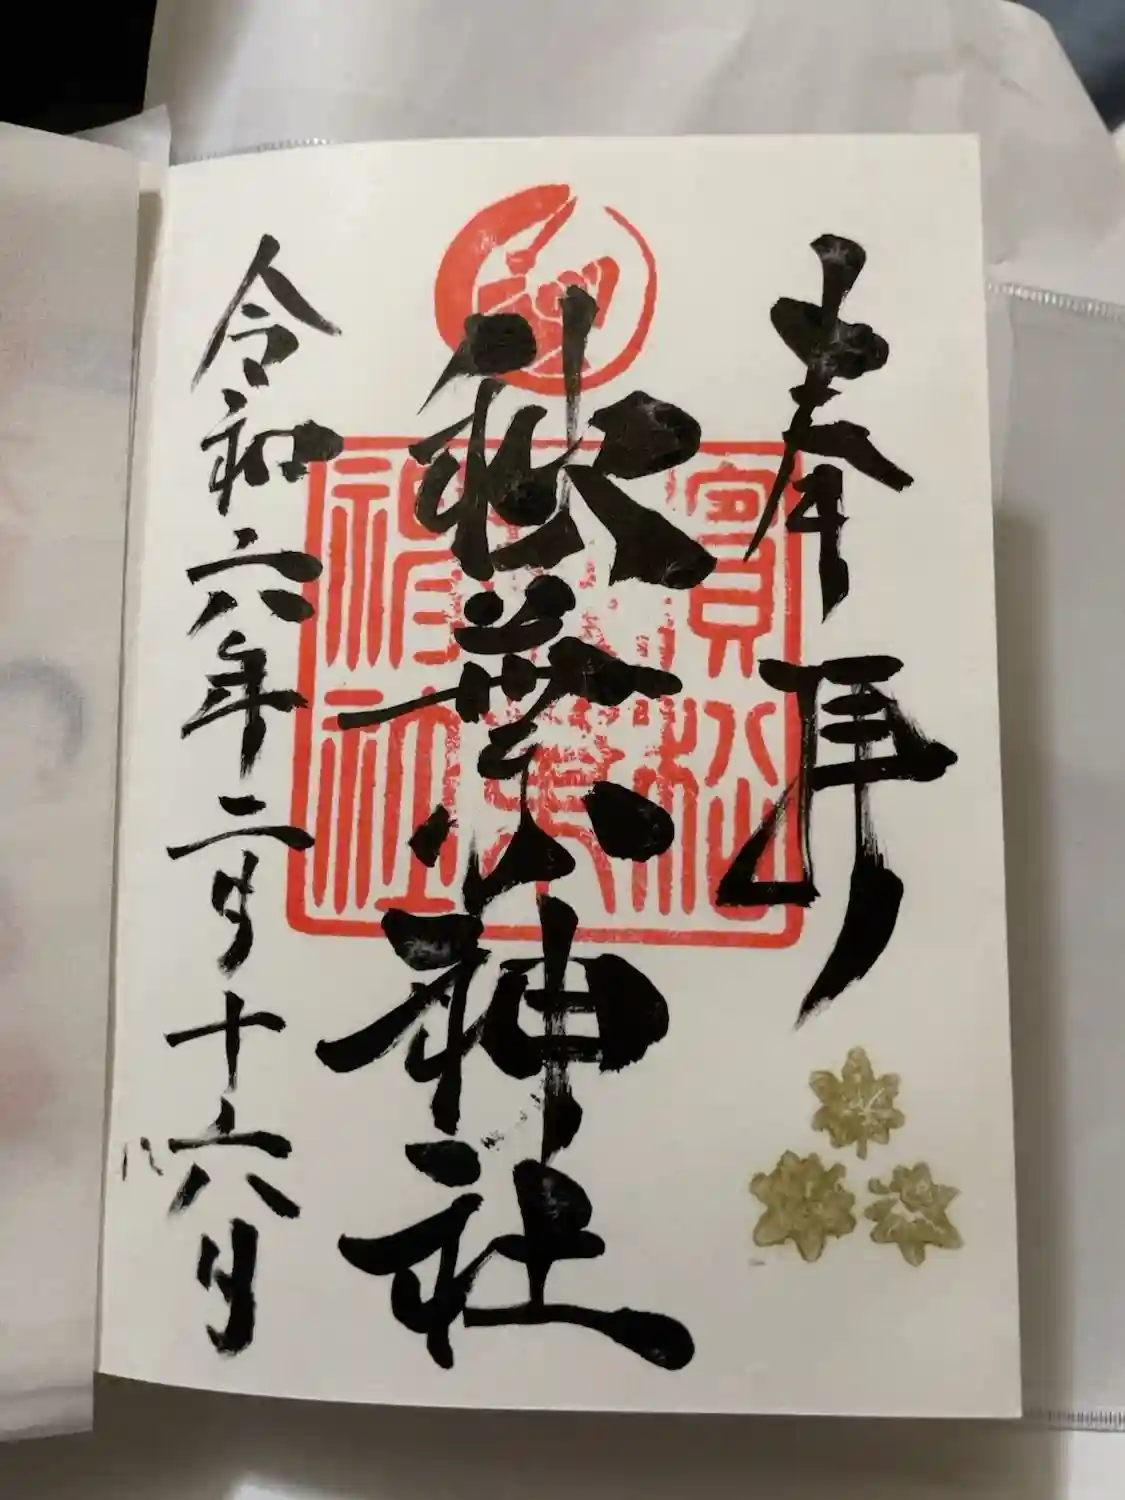 奉拝
秋葉神社
濱松秋葉神社
令和六年二月十六日